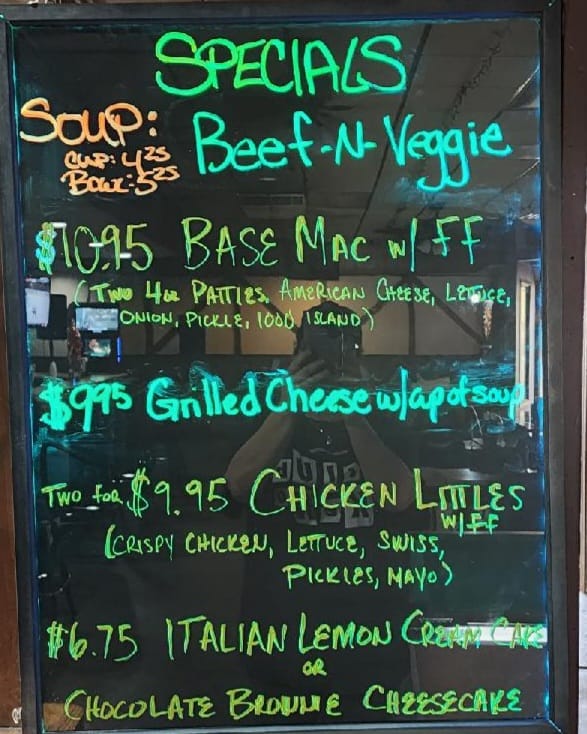 SPECIALS
SOUP: Beef-N-Veggie
CUP: 4.25
BOWL: 5.25
$10.95 BASE MAC W/ FF
(TWO 4oz PATTIES, AMERICAN CHEESE, LETTUCE,
ONION, PICKLE, 1000 ISLAND)
$9.95 Grilled Cheese w/ cup of soup
TWO FOR $9.95 CHICKEN LITTLES
W/FF
(CRISPY CHICKEN, LETTUCE, SWISS,
PICKLES, MAYO)
$6.75 ITALIAN LEMON CREAM CAKE
OR
CHOCOLATE BROWNIE CHEESECAKE